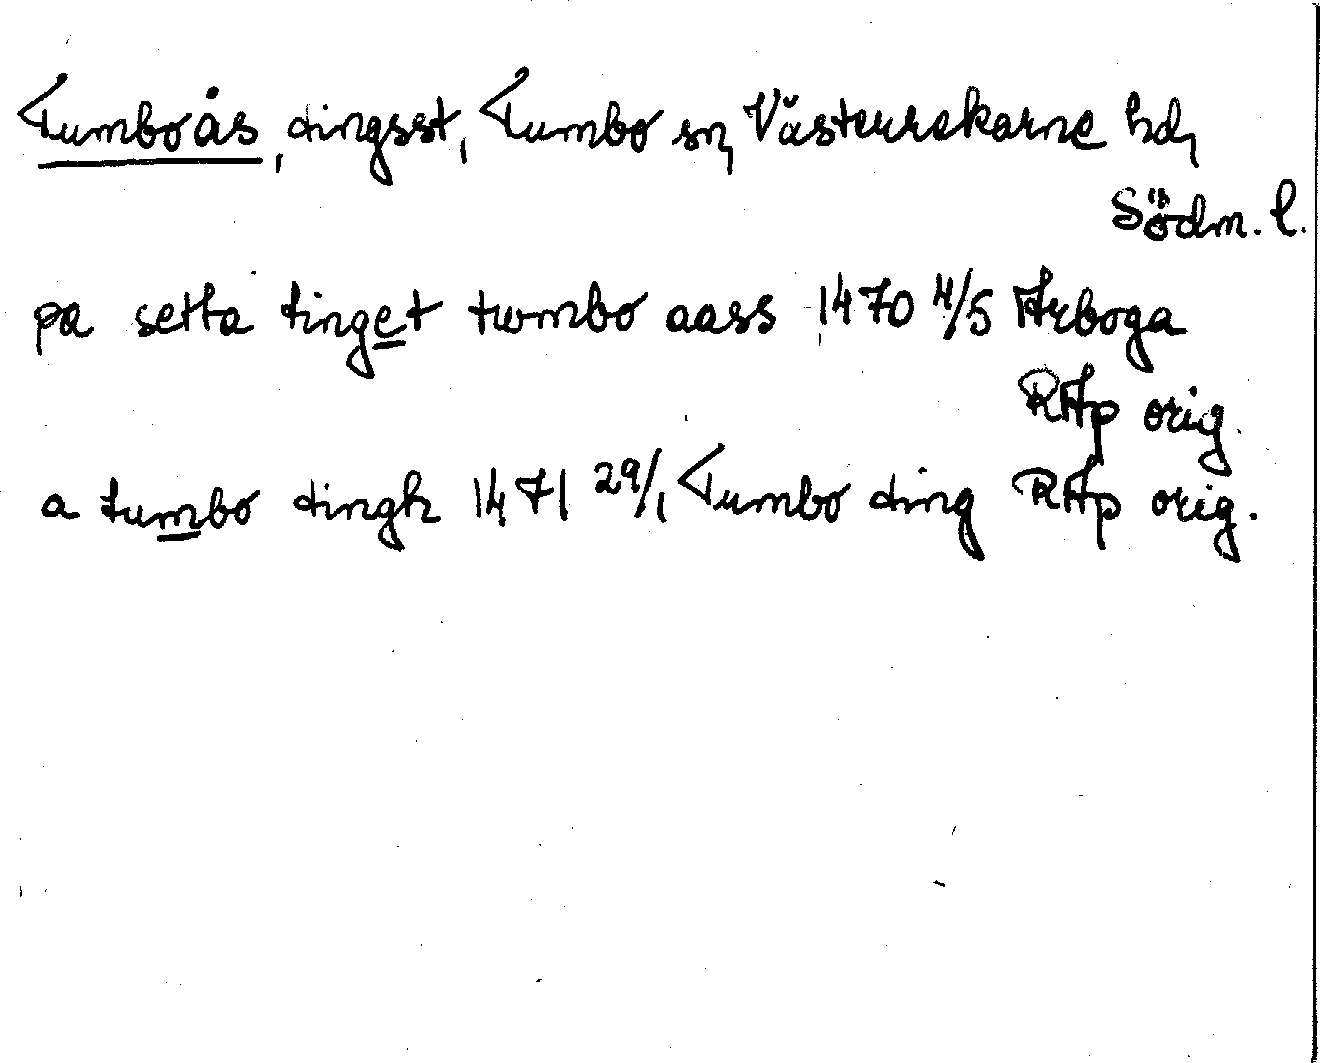 Tumboås, tingsst, Tumbo sn, Västerrekarne hd,
Södm. l.
pa setta tinget twmbo aass 1470 4/5 Arboga
RAp orig.
a tumbo tingh 1471 29/1 Tumbo ting RAp orig.